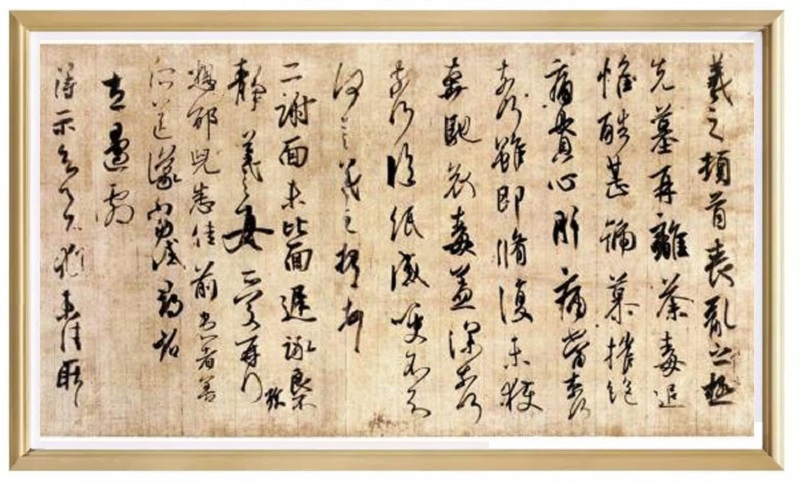 羲之頓首喪亂之極
先墓再離荼毒追
惟酷甚號慕摧絕
痛貫心肝痛當奈何
奈何雖即脩復未獲
奔馳哀毒益深奈何
奈何臨紙感哽不知
何言羲之頓首頓首
二謝面未比面遲詠良不
靜羲之女愛愛再拜
想邵兒悉佳前患者善
所送議當試尋省
左邊劇
得示知足下猶未佳耿